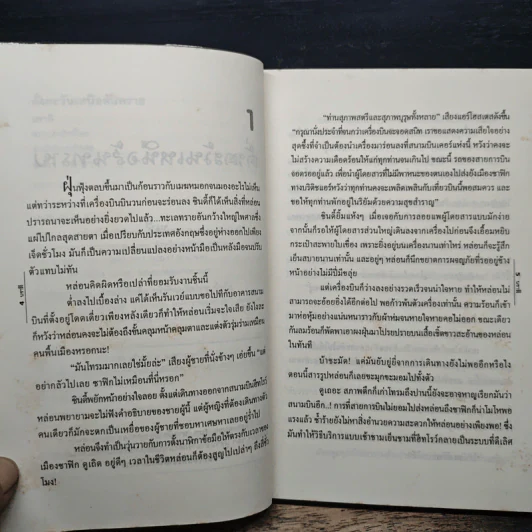 ๑
ฝุ่นฟุ้งตลบขึ้นมาเป็นก้อนราวกับเมฆหมอกจนมองอะไรไม่เห็น
แต่ทว่าระหว่างที่เครื่องบินบินวนก่อนจะร่อนลง ซินดี้ก็ได้เห็นสิ่งที่หล่อน
ปรารถนาจะเห็นอย่างยิ่งยวดไปแล้ว...ทะเลทรายอันกว้างใหญ่ไพศาลซึ่ง
แผ่ไปไกลสุดสายตา เมื่อเปรียบกับประเทศอังกฤษซึ่งอยู่ห่างออกไปเพียง
เจ็ดชั่วโมง มันก็เป็นความเปลี่ยนแปลงอย่างหน้ามือเป็นหลังมือจนปรับ
ตัวแทบไม่ทัน
หล่อนคิดผิดหรือเปล่าที่ยอมรับงานชิ้นนี้
ต่ำลงไปเบื้องล่าง
บินที่ตั้งอยู่โดดเดี่ยวเพียงหลังเดียวก็ทำให้หล่อนเริ่มจะใจเสีย
ก็หวังว่าหล่อนคงจะไม่ต้องถึงขั้นคลุมหน้าคลุมตาและแต่งตัวรุ่มร่ามเหมือน
คนพื้นเมืองหรอกนะ!
"มันโทรมมากเลยใช่มั้ยล่ะ" เสียงผู้ชายที่นั่งข้างๆ เอ่ยขึ้น "แต่
อย่ากลัวไปเลย ซาฟิกไม่เหมือนที่นี่หรอก"
ซินดี้พยักหน้าอย่างใจลอย ตั้งแต่เดินทางออกจากสนามบินฮีทโรว์
หล่อนพยายามจะไม่ฟังคำอธิบายของชายผู้นี้ แต่ผู้หญิงที่ต้องเดินทางตัว
คนเดียวก็มักจะตกเป็นเหยื่อของผู้ชายที่ชอบหาเศษหาเลยอยู่ร่ำไป
หล่อนจึงทำเป็นวุ่นวายกับการตั้งนาฬิกาข้อมือให้ตรงกับเวลาของ
เมืองซาฟิก ดูเถิด อยู่ดีๆ เวลาในชีวิตหล่อนก็ต้องสูญไปเปล่าๆ ถึงสี่ชั่ว
โมง!
4
"ท่านสุภาพสตรีและสุภาพบุรุษทั้งหลาย" เสียงแอร์โฮสเตสดังขึ้น
"กรุณานั่งประจำที่จนกว่าเครื่องบินจะจอดสนิท เราขอแสดงความเสียใจอย่าง
สุดซึ้งที่จำเป็นต้องนำเครื่องมาร่อนลงที่สนามบินเดอร์แห่งนี้ หวังว่าคงจะ
ไม่สร้างความเดือดร้อนให้แก่ทุกท่านจนเกินไป ขณะนี้ รถของสายการบิน
จอดรออยู่แล้ว เพื่อนำผู้โดยสารที่ไม่มีพาหนะของตนเองไปส่งยังเมืองซาฟิก
ทางบริติชแอร์หวังว่าทุกท่านคงจะเพลิดเพลินกับเที่ยวบินนี้พอสมควร และ
ขอให้ทุกท่านพักอยู่ในริยัมด้วยความสุขสำราญ"
ซินดี้ยิ้มแห้งๆ เมื่อเจอกับการลอยแพผู้โดยสารแบบมักง่าย
จากนั้นก็รอให้ผู้โดยสารส่วนใหญ่เดินลงจากเครื่องไปก่อนจึงเอื้อมหยิบ
กระเป๋าสะพายใบเขื่อง เพราะยิ่งอยู่บนเครื่องนานเท่าไหร่ หล่อนก็จะรู้สึก
เย็นสบายนานเท่านั้น และอยู่ๆ หล่อนก็นึกขยาดการผจญภัยที่รออยู่ข้าง
หน้าอย่างไม่มีปี่มีขลุ่ย
แต่เครื่องบินก็ว่างลงอย่างรวดเร็วจนน่าใจหาย ทำให้หล่อนไม่
สามารถจะอ้อยอิ่งได้อีกต่อไป พอก้าวพ้นตัวเครื่องเท่านั้น ความร้อนก็เข้า
มาห่อหุ้มอย่างแน่นหนาราวกับผ้าห่มจนหายใจหายคอไม่ออก ขณะเดียว
กันลมร้อนก็พัดพาเอาผงฝุ่นมาโปรยปรายบนเสื้อเชิ้ตขาวสะอ้านของหล่อน
ในทันที
บ้าชะมัด! แค่มันยับยู่ยี่จากการเดินทางยังไม่พออีกหรือไง
ตอนนี้สารรูปหล่อนก็เลยขะมุกขะมอมไปทั้งตัว
ดูเถอะ สภาพตึกก็เก่าโทรมถึงปานนี้ยังจะอาจหาญเรียกมันว่า
สนามบินอีก..! การที่สายการบินไม่ยอมไปส่งหล่อนถึงซาฟิกก็น่าโมโหพอ
แรงแล้ว ซ้ำร้ายยังไม่หาสิ่งอำนวยความสะดวกให้หล่อนอย่างเพียงพอ! ซึ่ง
มันทำให้วิธีบริการแบบเช้าชามเย็นชามที่ฮีทโรว์กลายเป็นระบบที่ดีเลิศ
5